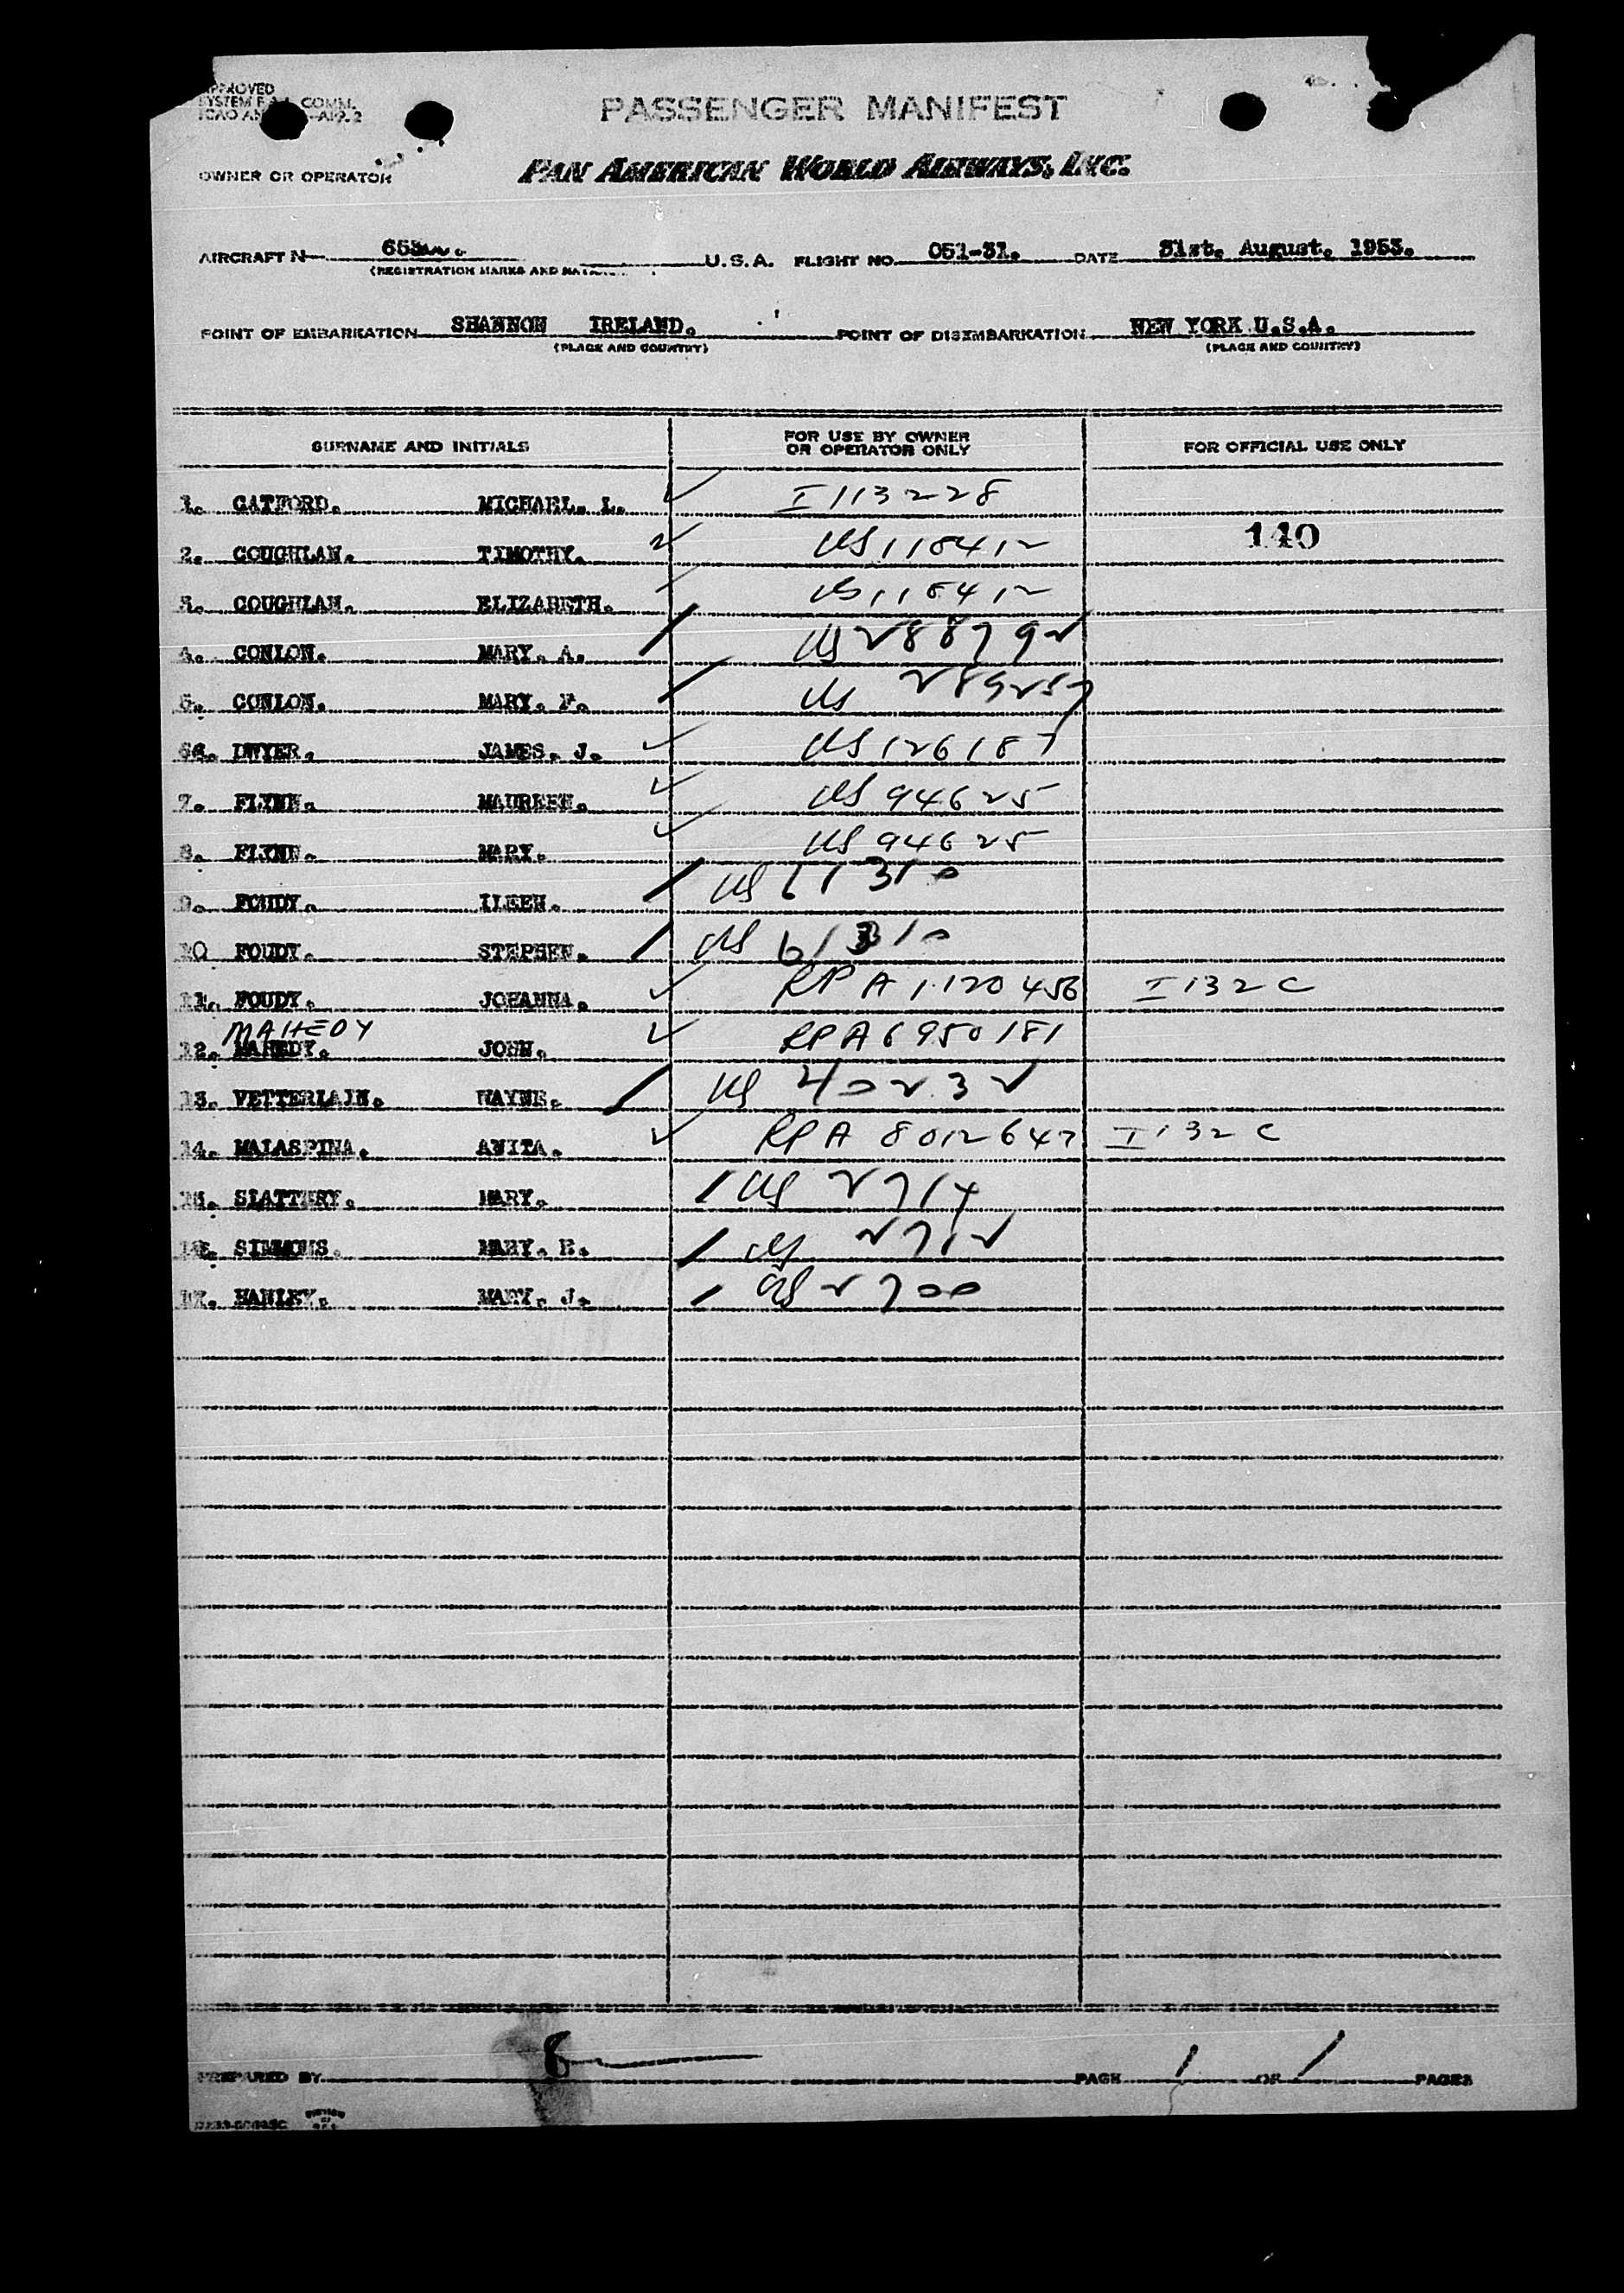 APPROVED
PASSENGER MANIFEST
OWNER OR OPERATOR PAN AMERICAN WORLD AIRWAYS, INC.
AIRCRAFT N U.S.A. FLIGHT NO. 051-31. DATE 31st. August. 1953.
(REGISTRATION MARKS AND
POINT OF EMBARKATION SHANNON IRELAND. POINT OF DISEMBARKATION NEW YORK U.S.A.
(PLACE AND COUNTRY) (PLACE AND COUNTRY)
SURNAME AND INITIALS FOR USE BY OWNER OR OPERATOR ONLY FOR OFFICIAL USE ONLY
1. GATFORD. MICHAEL. L. I 113228
140
2. COUGHLAN. TIMOTHY. US 118412
3. COUGHLAN. ELIZABETH. US 118412
4. CONLON. MARY. A. US 288792
5. CONLON. MARY. F. US 289257
6. DWYER. JAMES. J. US 126187
7. FLYNN. MAUREEN. US 94625
8. FLYNN. MARY. US 94625
9. FOUDY. ILEEN. US 61310
10 FOUDY. STEPHEN. US 61310
11. FOUDY. JOHANNA. RP A1120456 I 132 C
MAHEDY
12. JOHN. RP A6950181
13. VETTERLAIN. WAYNE. US 40232
14. MALASPINA. ANITA. RP A 8012647 I 132 C
15. SLATTERY. MARY. US 2714
16. SIMMONS. MARY. E. US 2712
17. HANLEY. MARY. J. US 2700
PREPARED BY PAGE 1 OF 1 PAGES